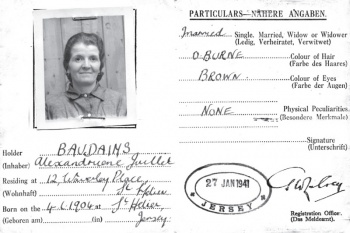 Holder BAUDAINS
(Inhaber) Alexandrienne Juillet
Residing at 12, Waverley Place,
(Wohnhaft) St Helier
Born on the 4.6.1904 at St Helier,
(Geboren am) (in) Jersey.
PARTICULARS—NÄHERE ANGABEN.
Married Single, Married, Widow or Widower
(Ledig, Verheiratet, Verwitwet)
Colour of Hair
(Farbe des Haares)
BROWN Colour of Eyes
(Farbe der Augen)
NONE Physical Peculiarities.
(Besondere Merkmale)
Signature
(Unterschrift)
27 JAN 1941
JERSEY
Registration Officer.
(Das Meldeamt).